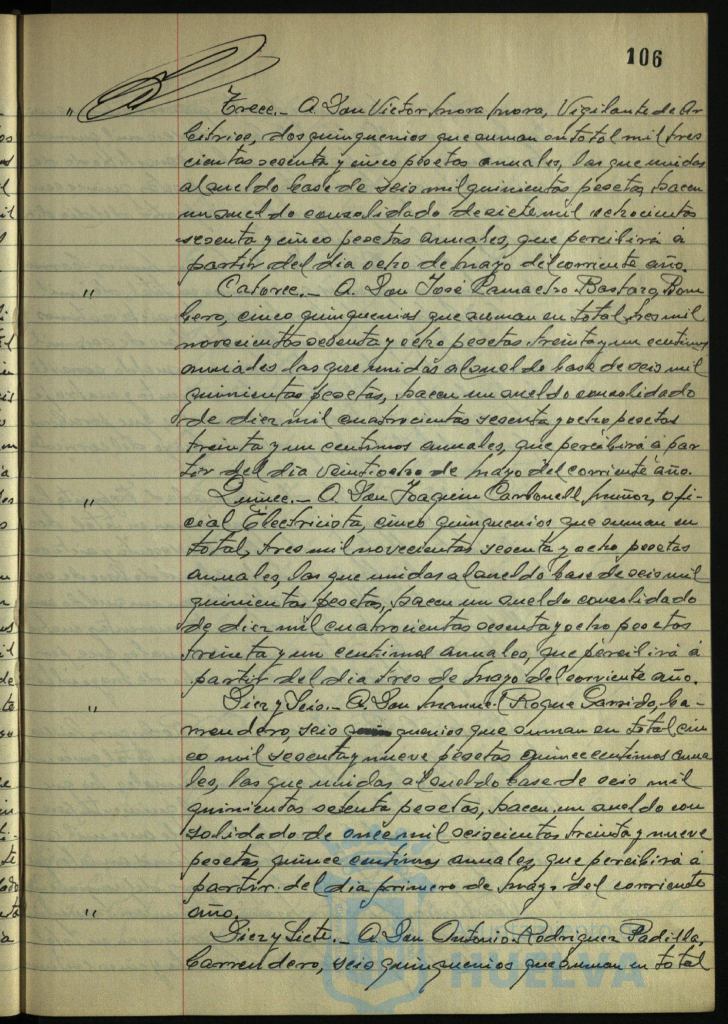 106
" Trece.- A Don Victor Mora Mora, Vigilante de Ar-
bitrios, dos quinquenios que suman en total mil tres
cientas sesenta y cinco pesetas anuales, las que unidas
al sueldo base de seis mil quinientas pesetas, hacen
un sueldo consolidado de siete mil ochocientas
sesenta y cinco pesetas anuales, que percibirá á
partir del dia ocho de Mayo del corriente año.
" Catorce.- A Don José Camacho Bastazo, Bom
bero, cinco quinquenios que suman en total tres mil
novecientas sesenta y ocho pesetas treinta y un centimos
anuales las que unidas al sueldo base de seis mil
quinientas pesetas, hacen un sueldo consolidado
de diez mil cuatrocientas sesenta y ocho pesetas
treinta y un centimos anuales, que percibirá á par
tir del dia veintiocho de Mayo del corriente año.
" Quince.- A Don Joaquin Carbonell Muñoz, ofi-
cial Electricista, cinco quinquenios que suman en
total, tres mil novecientas sesenta y ocho pesetas
anuales, las que unidas al sueldo base de seis mil
quinientas pesetas, hacen un sueldo consolidado
de diez mil cuatrocientas sesenta y ocho pesetas
treinta y un centimos anuales, que percibirá á
partir del dia tres de Mayo del corriente año.
" Diez y Seis.- A Don Manuel Roque Garrido, Ba-
rrendero, seis quenios que suman en total cin
co mil sesenta y nueve pesetas quince centimos anua
les, las que unidas al sueldo base de seis mil
quinientas setenta pesetas, hacen un sueldo con
solidado de once mil seiscientas treinta y nueve
pesetas quince centimos anuales, que percibirá á
partir del dia primero de Mayo del corriente
año.
" Diez y Siete.- A Don Antonio Rodriguez Padilla,
barrendero, seis quinquenios que suman en total
HUELVA